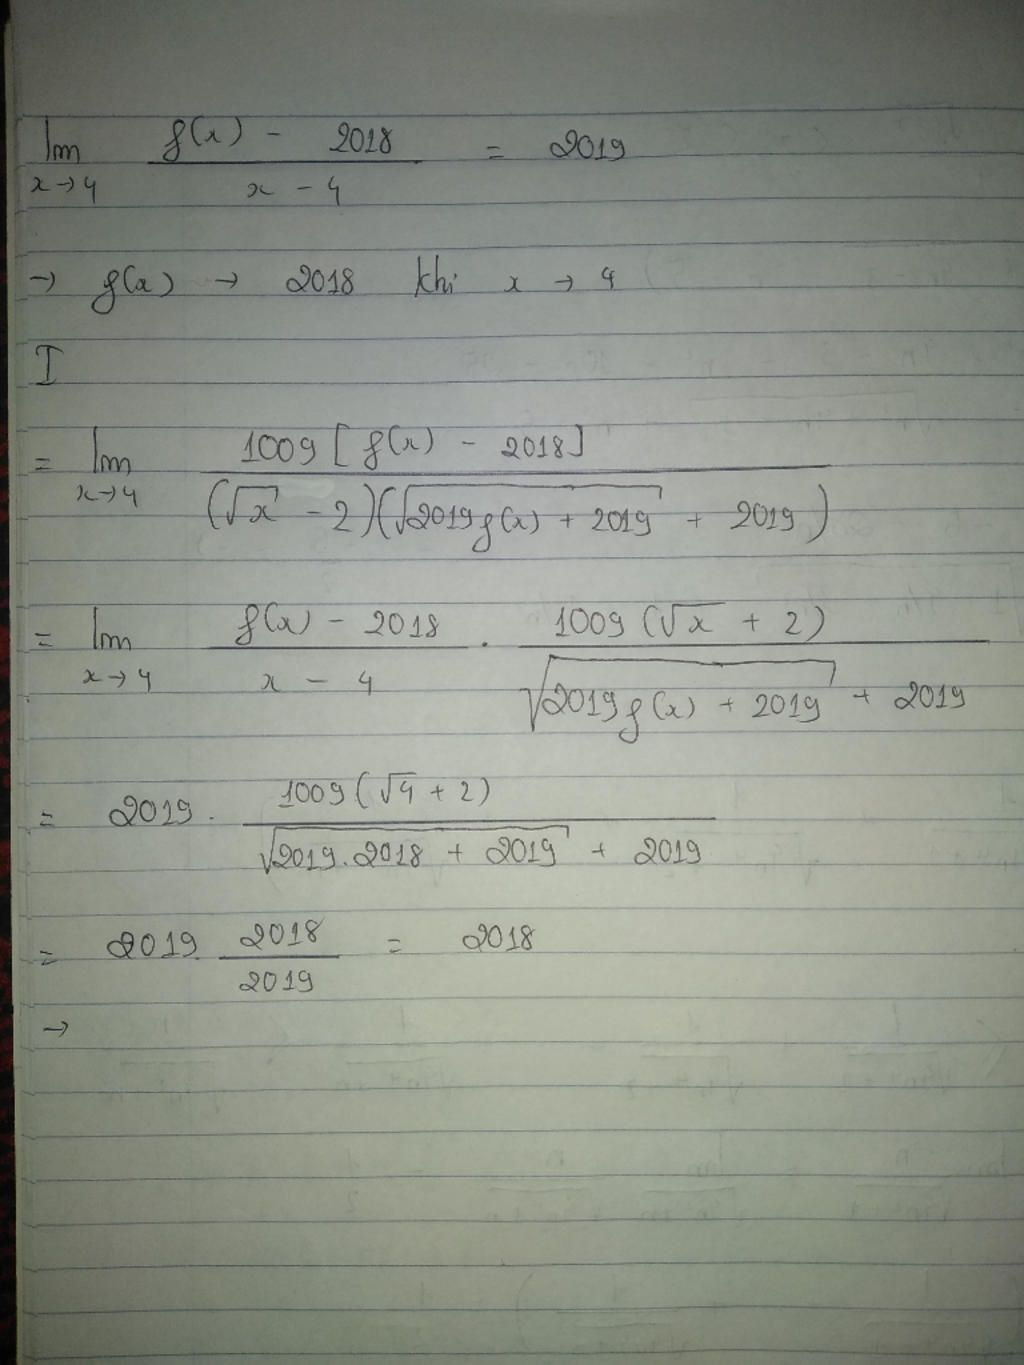 lim x→4 (f(x) - 2018)/(x - 4) = 2019
→ f(x) → 2018 khi x → 4
I
= lim x→4 1009[f(x) - 2018]/((√x - 2)(√(2019f(x) + 2019) + 2019))
= lim x→4 (f(x) - 2018)/(x - 4) . 1009(√x + 2)/(√(2019f(x) + 2019) + 2019)
= 2019 . 1009(√4 + 2)/(√(2019.2018 + 2019) + 2019)
= 2019. 2018/2019 = 2018
→